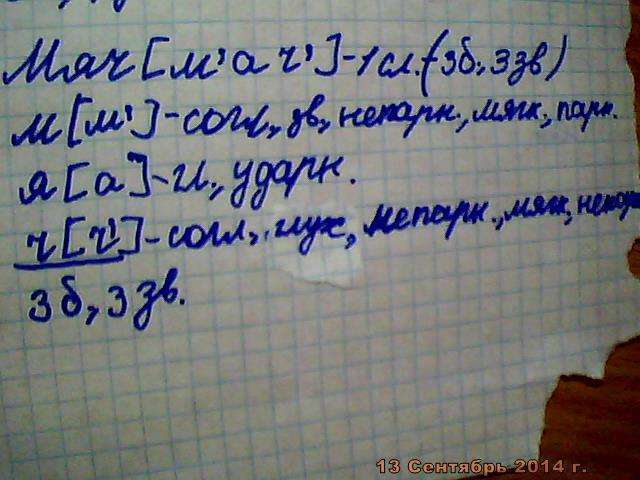 Мяч [м'ач'] - 1 сл. (3б, 3зв)
м [м'] - согл, зв, непарн., мягк, парн.
я [а] - гл, ударн.
ч [ч'] - согл, глух, непарн., мягк, непарн
3б, 3зв.
13 Сентябрь 2014 г.